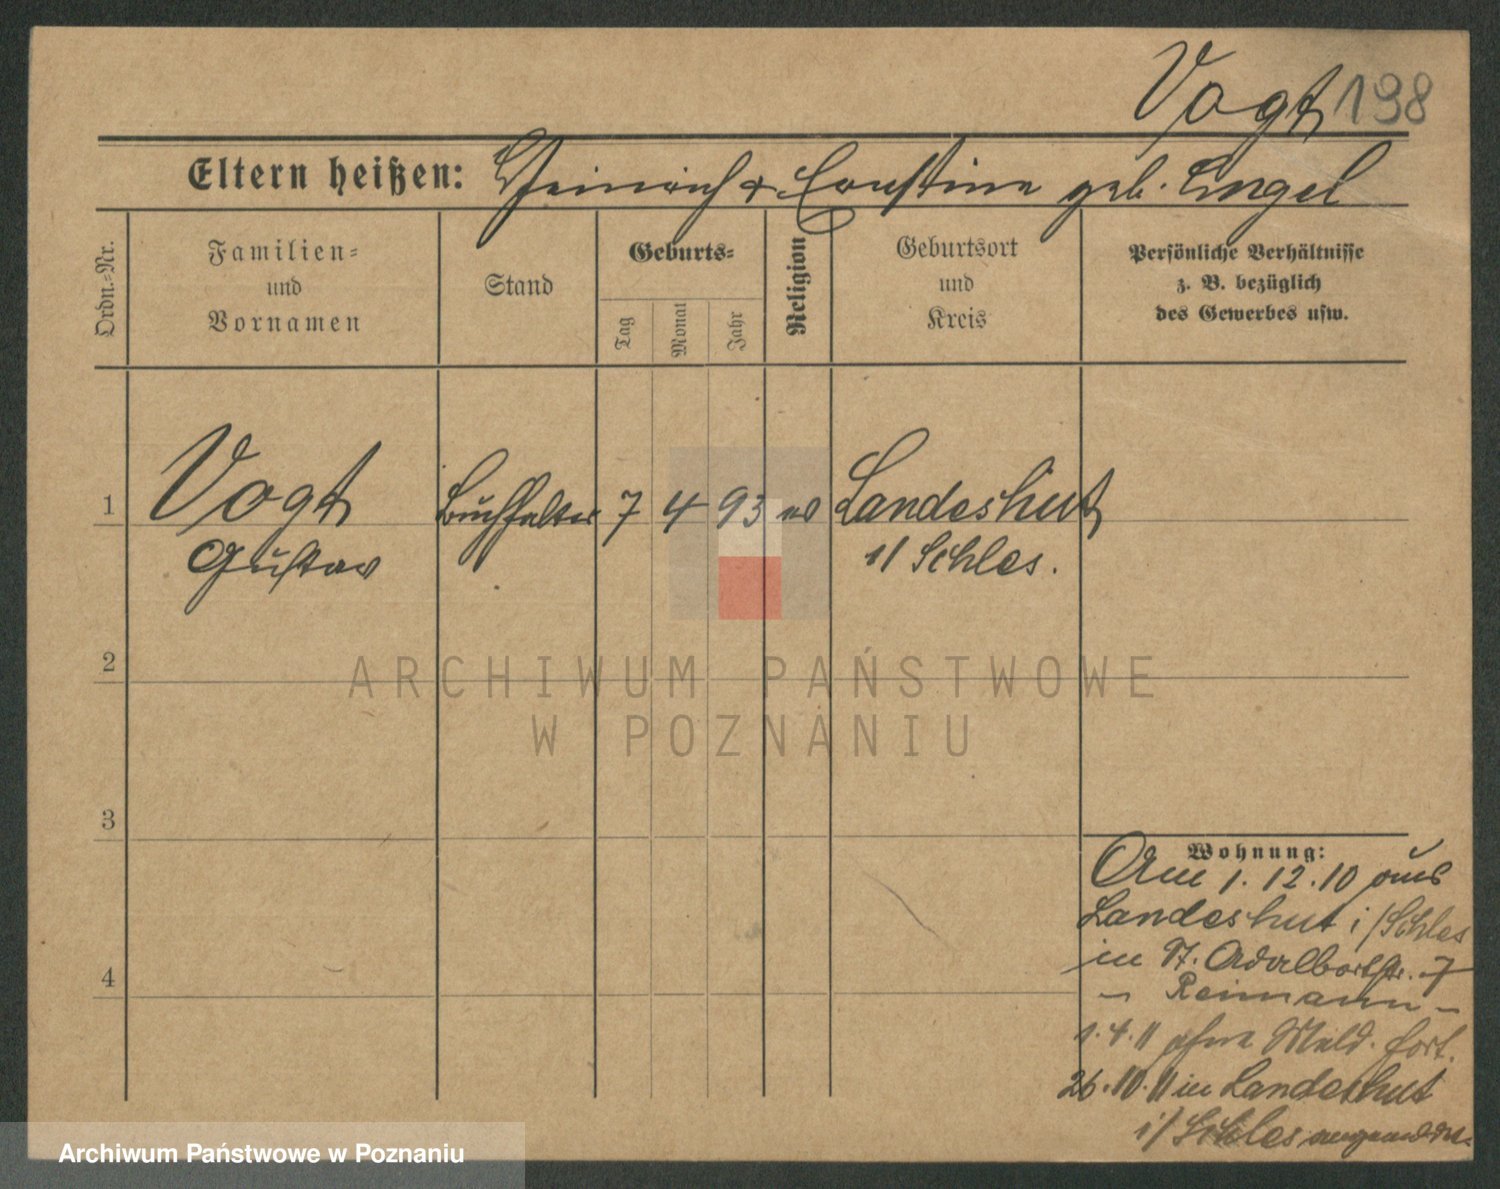 Vogt 198
Eltern heißen: Heinrich & Ernstine geb. Engel
Ordn.-Nr.
Familien-
und
Vornamen
Stand
Geburts-
Tag
Monat
Jahr
Religion
Geburtsort
und
Kreis
Persönliche Verhältnisse
z. B. bezüglich
des Gewerbes usw.
1 Vogt Buchhalter 7 4 93 ev Landeshut
Gustav i/ Schles.
2
3
4
Wohnung:
Am 1.12.10 aus
Landeshut i/Schles
in St. Adalbertstr. 7
- Reimann -
1.4.11 ohne Meld. fort.
26.10.11 in Landeshut
i/Schles angemeldet.
ARCHIWUM PAŃSTWOWE
W POZNANIU
Archiwum Państwowe w Poznaniu